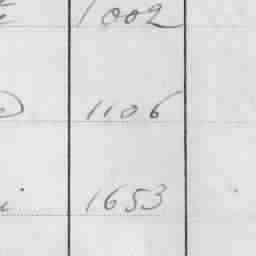 1002
1106
1653